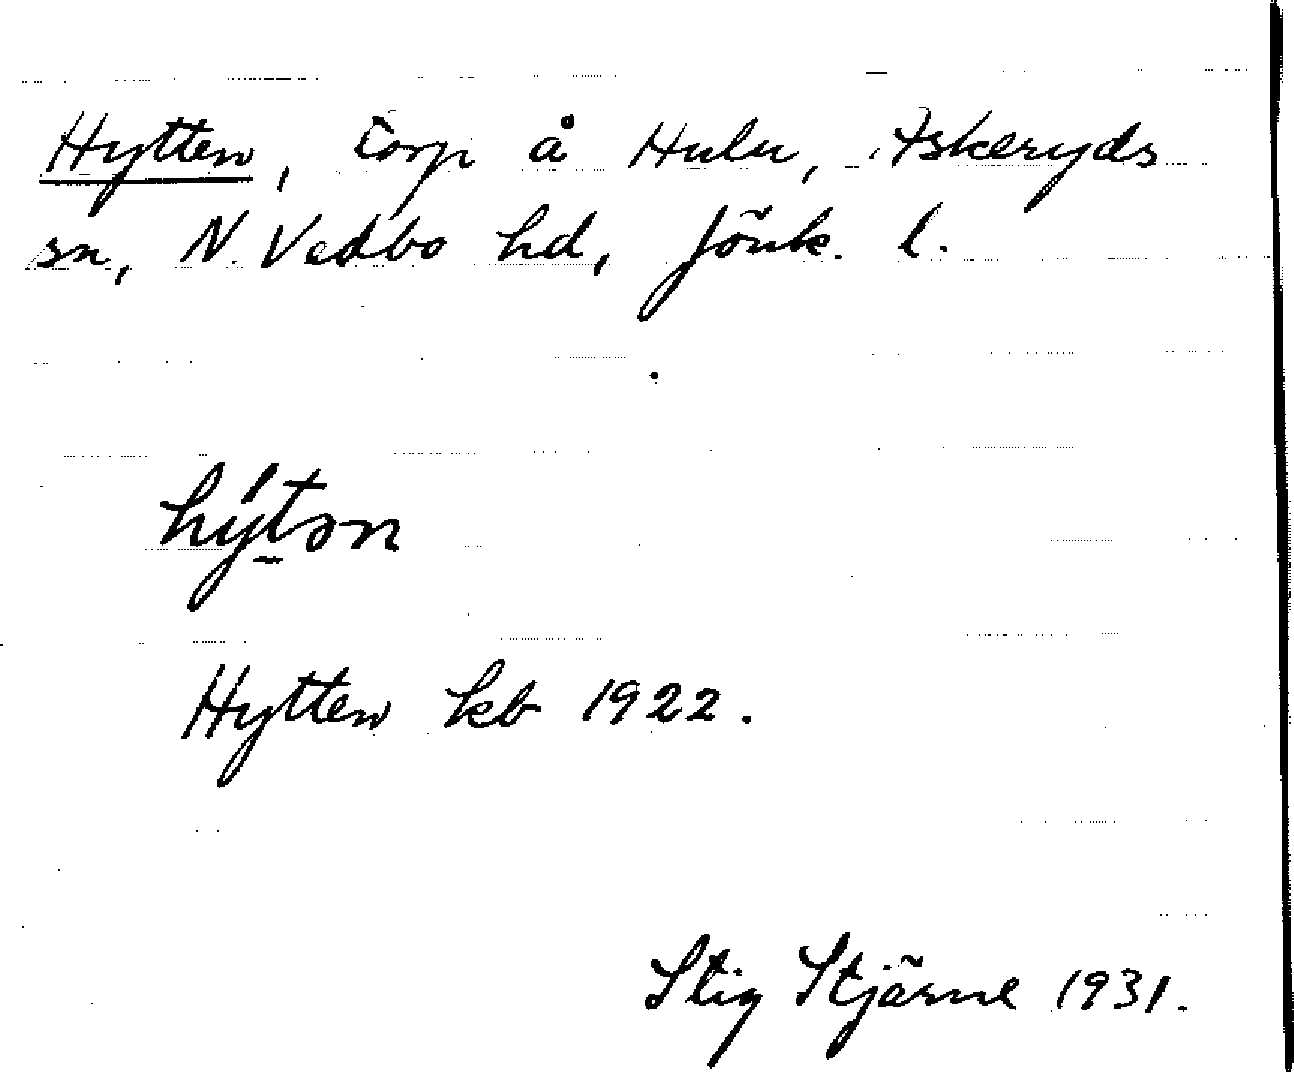 Hytten, torp å Hulu, Askeryds
sn, N. Vedbo hd, Jönk. l.
hýt̰ən
Hytten kb 1922.
Stig Stjärne 1931.